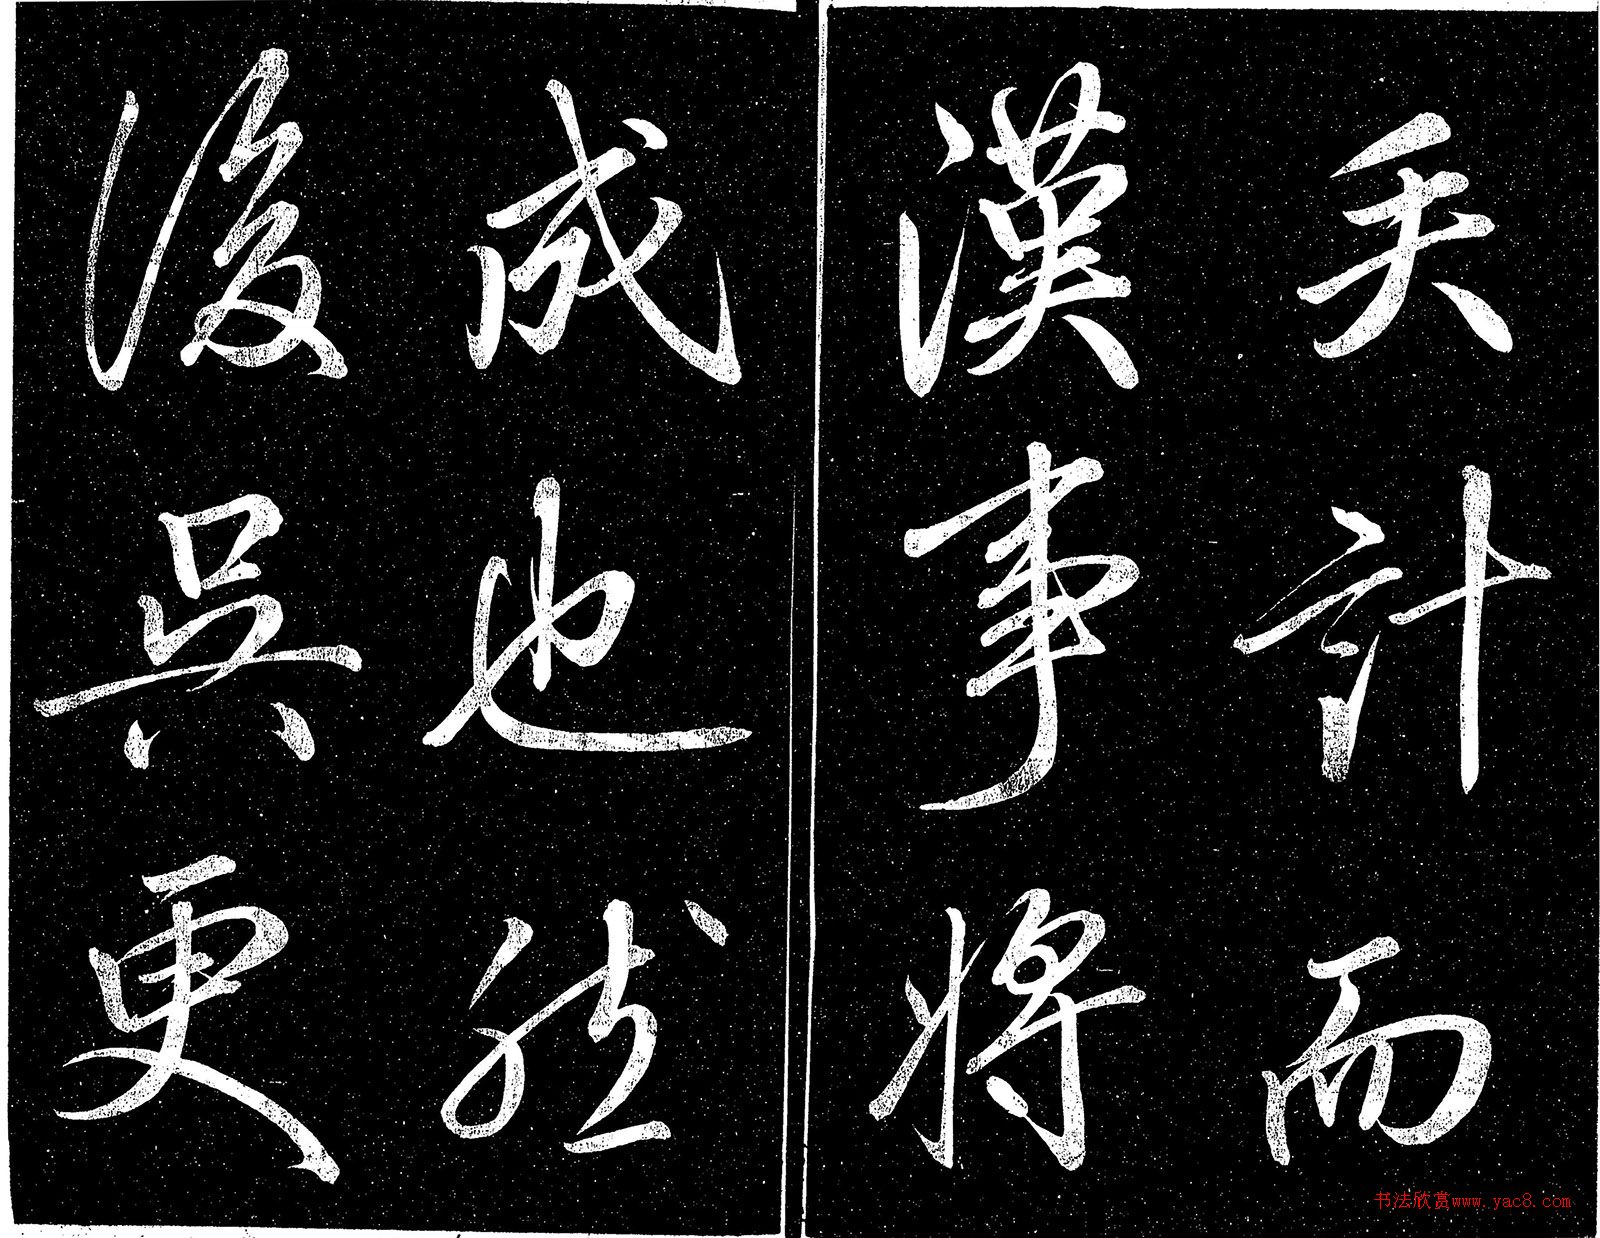 失計而
漢事將
成也然
後吳更
书法欣赏www.yac8.com